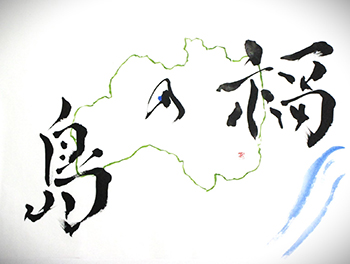 福の島